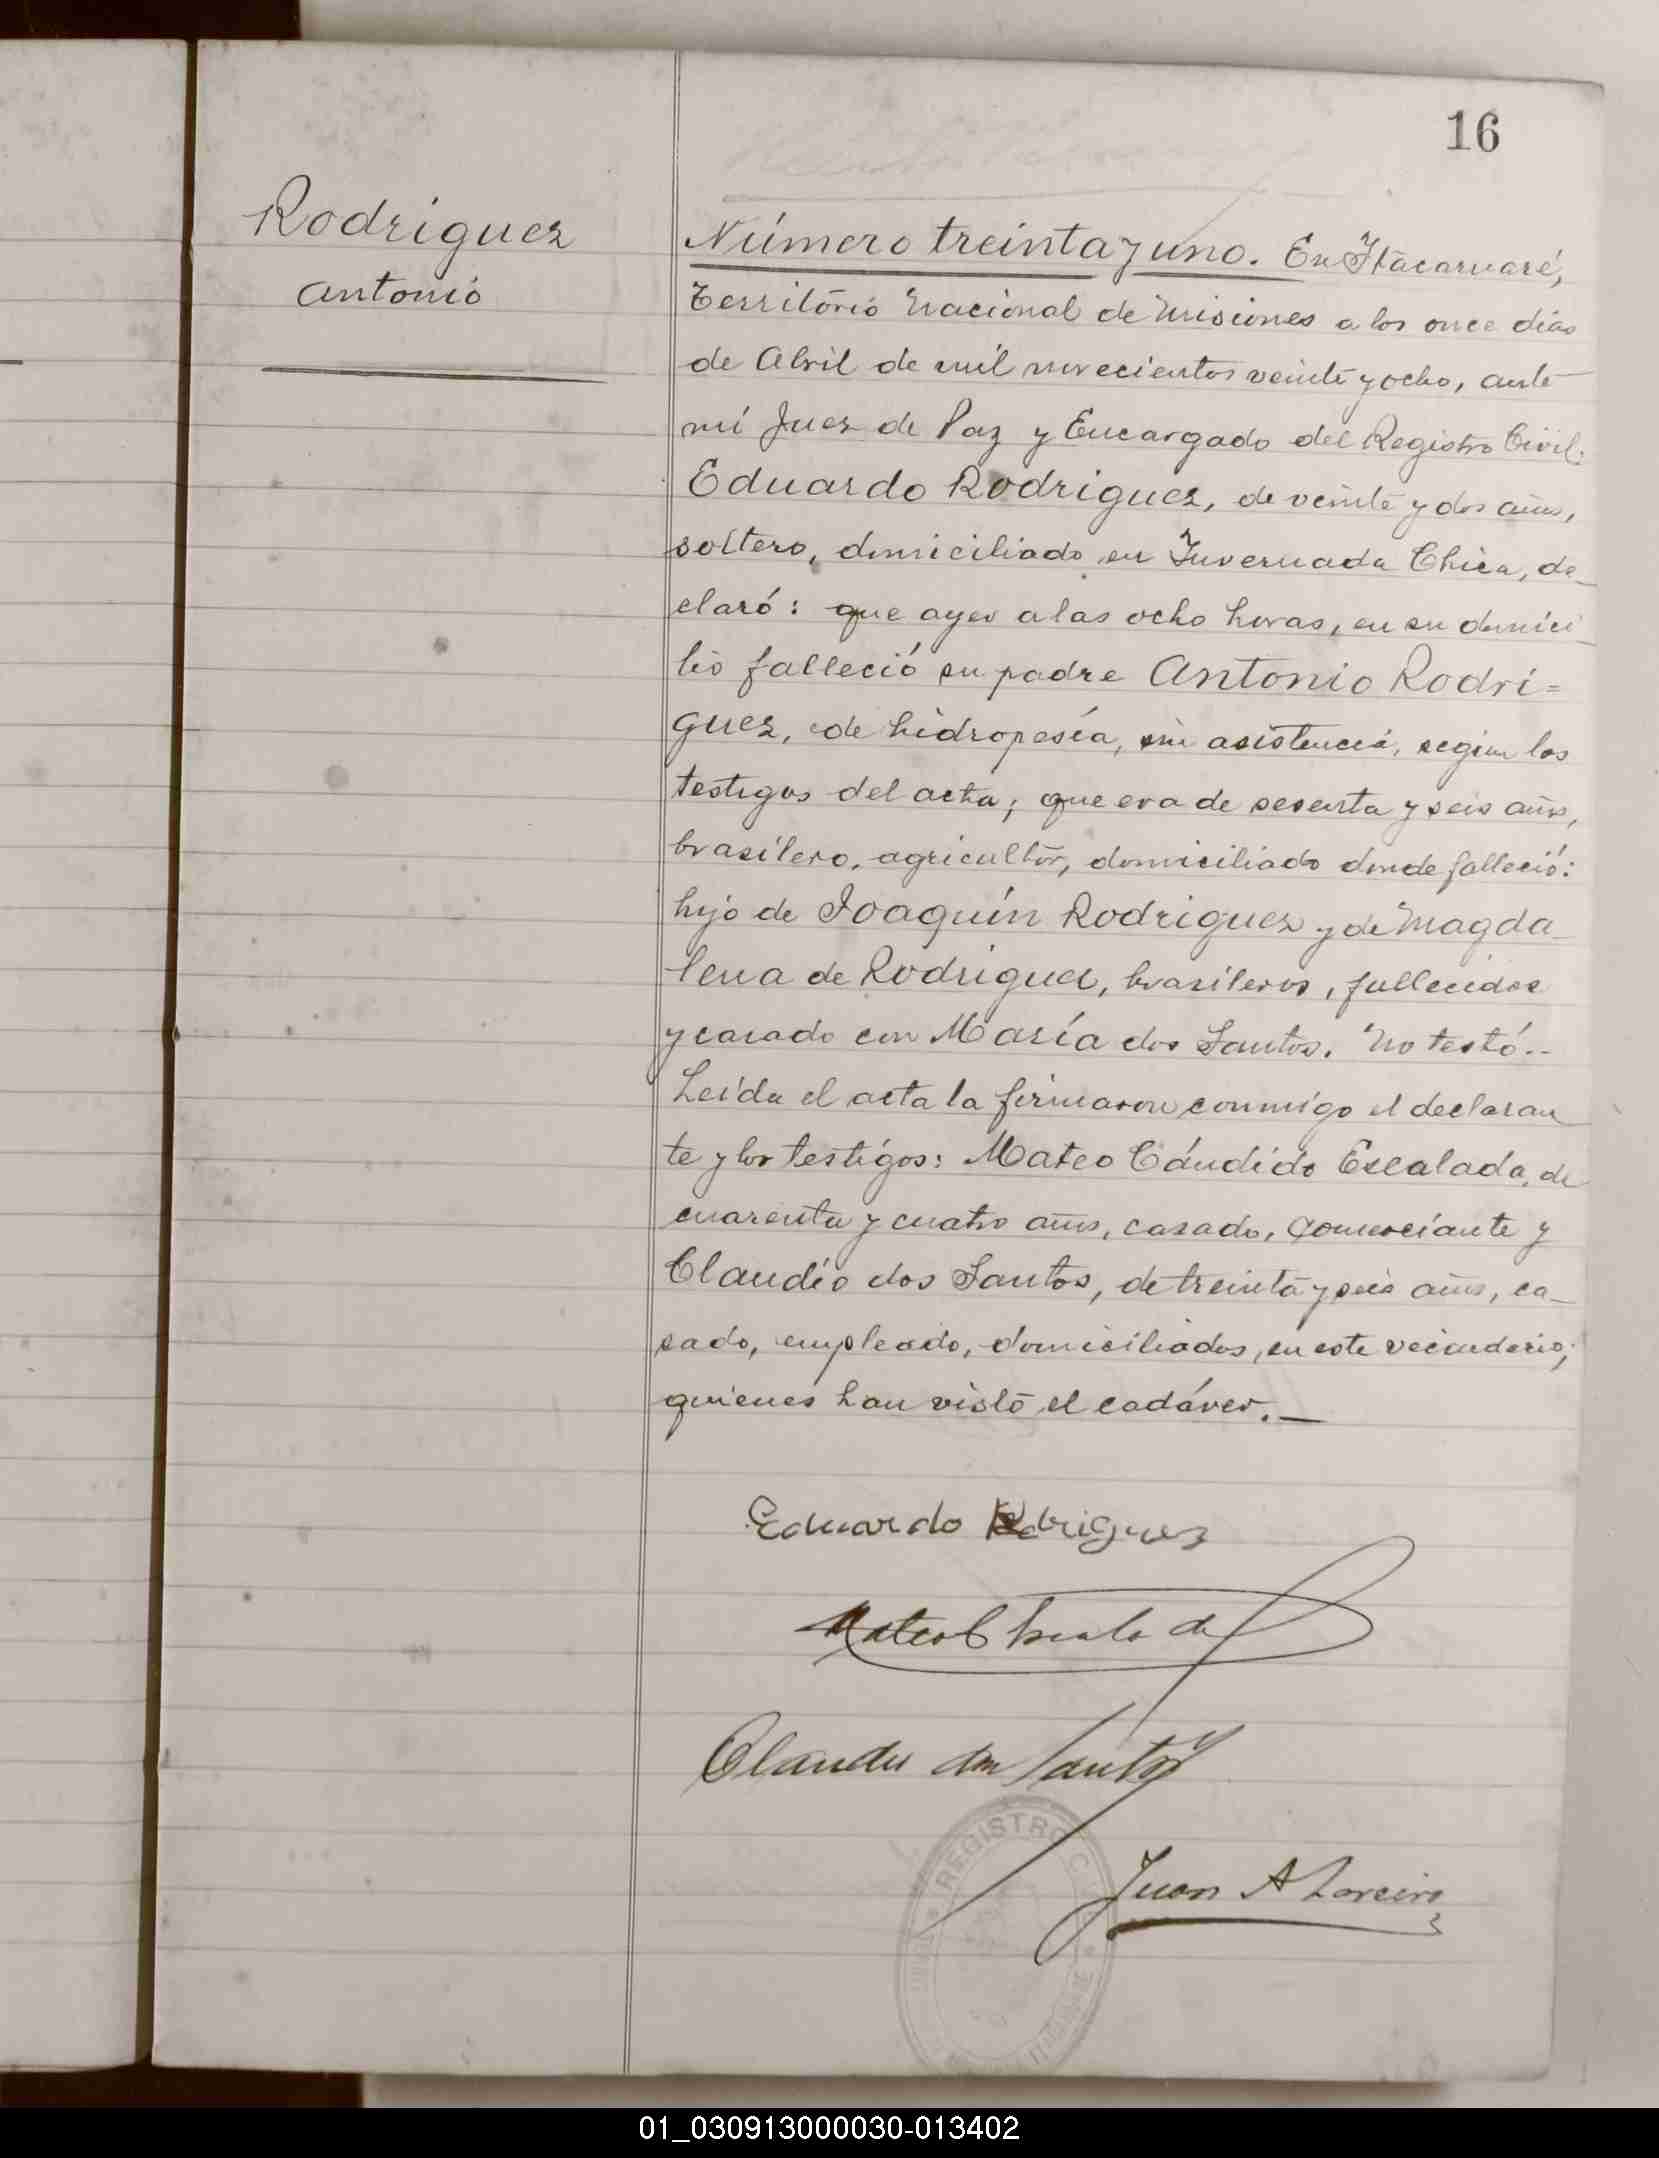 16
Rodriguez
Antonio
Número treinta y uno. En Itacaruaré,
Territorio Nacional de Misiones a los once días
de Abril de mil novecientos veinte y ocho, ante
mí Juez de Paz y Encargado del Registro Civil:
Eduardo Rodriguez, de veinte y dos años,
soltero, domiciliado en Invernada Chica, de_
claró: que ayer a las ocho horas, en su domici_
lio falleció su padre Antonio Rodri=
guez, de hidropesía, sin asistencia, según los
testigos del acta; que era de sesenta y seis años,
brasilero, agricultor, domiciliado donde falleció:
hijo de Joaquín Rodriguez y de Magda_
lena de Rodriguez, brasileros, fallecidos
y casado con María dos Santos. No testó.-
Leída el acta la firmaron conmigo el declaran_
te y los testigos: Mateo Cándido Escalada, de
cuarenta y cuatro años, casado, comerciante y
Claudio dos Santos, de treinta y seis años, ca_
sado, empleado, domiciliados, en este vecindario;
quienes han visto el cadáver._
Eduardo Rodriguez
Mateo C Escalada
Claudio dos Santos
REGISTRO C
Juan A
01_030913000030-013402